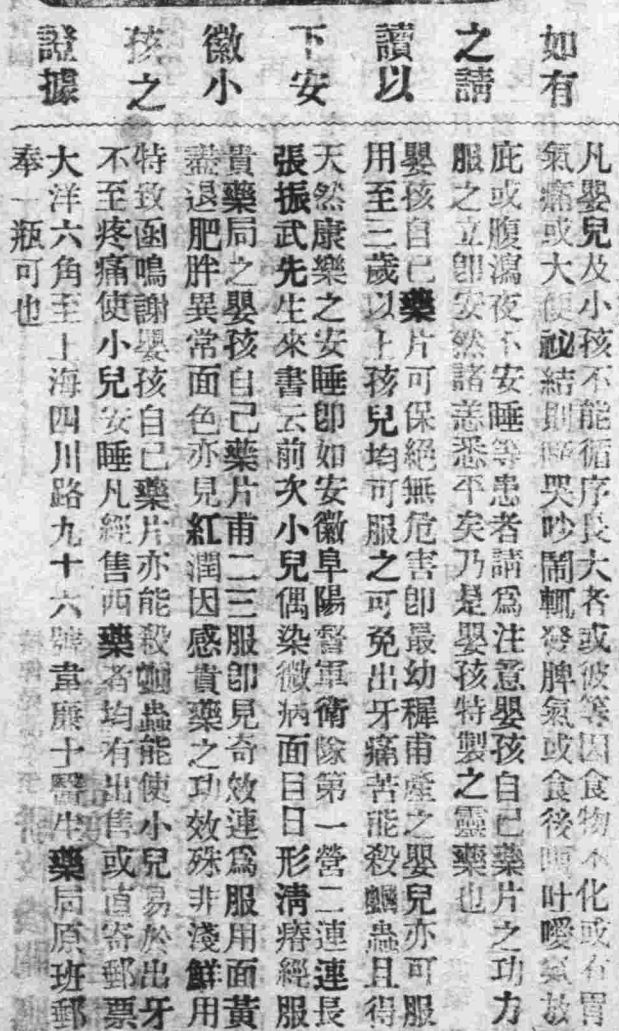 如有
之請
讀以
下安
徽小
孩之
證據
凡嬰兒及小孩不能循序長大者或彼等因食物不化或有胃
氣痛或大便祕結則啼哭吵鬧輒發脾氣或食後嘔吐噯氣放
庇或腹瀉夜不安睡等患者請爲注意嬰孩自己藥片之功力
服之立卽安然諸恙悉平矣乃是嬰孩特製之靈藥也
嬰孩自己藥片可保絕無危害卽最幼穉甫產之嬰兒亦可服
用至三歲以上孩兒均可服之可免出牙痛苦能殺蛔蟲且得
天然康樂之安睡卽如安徽阜陽督軍衛隊第一營二連連長
張振武先生來書云前次小兒偶染微病面目日形淸瘠經服
貴藥局之嬰孩自己藥片甫二三服卽見奇效連爲服用面黃
盡退肥胖異常面色亦見紅潤因感貴藥之功效殊非淺鮮用
特致函鳴謝嬰孩自己藥片亦能殺蛔蟲能使小兒易於出牙
不至疼痛使小兒安睡凡經售西藥者均有出售或直寄郵票
大洋六角至上海四川路九十六號韋廉士醫生藥局原班郵
奉一瓶可也